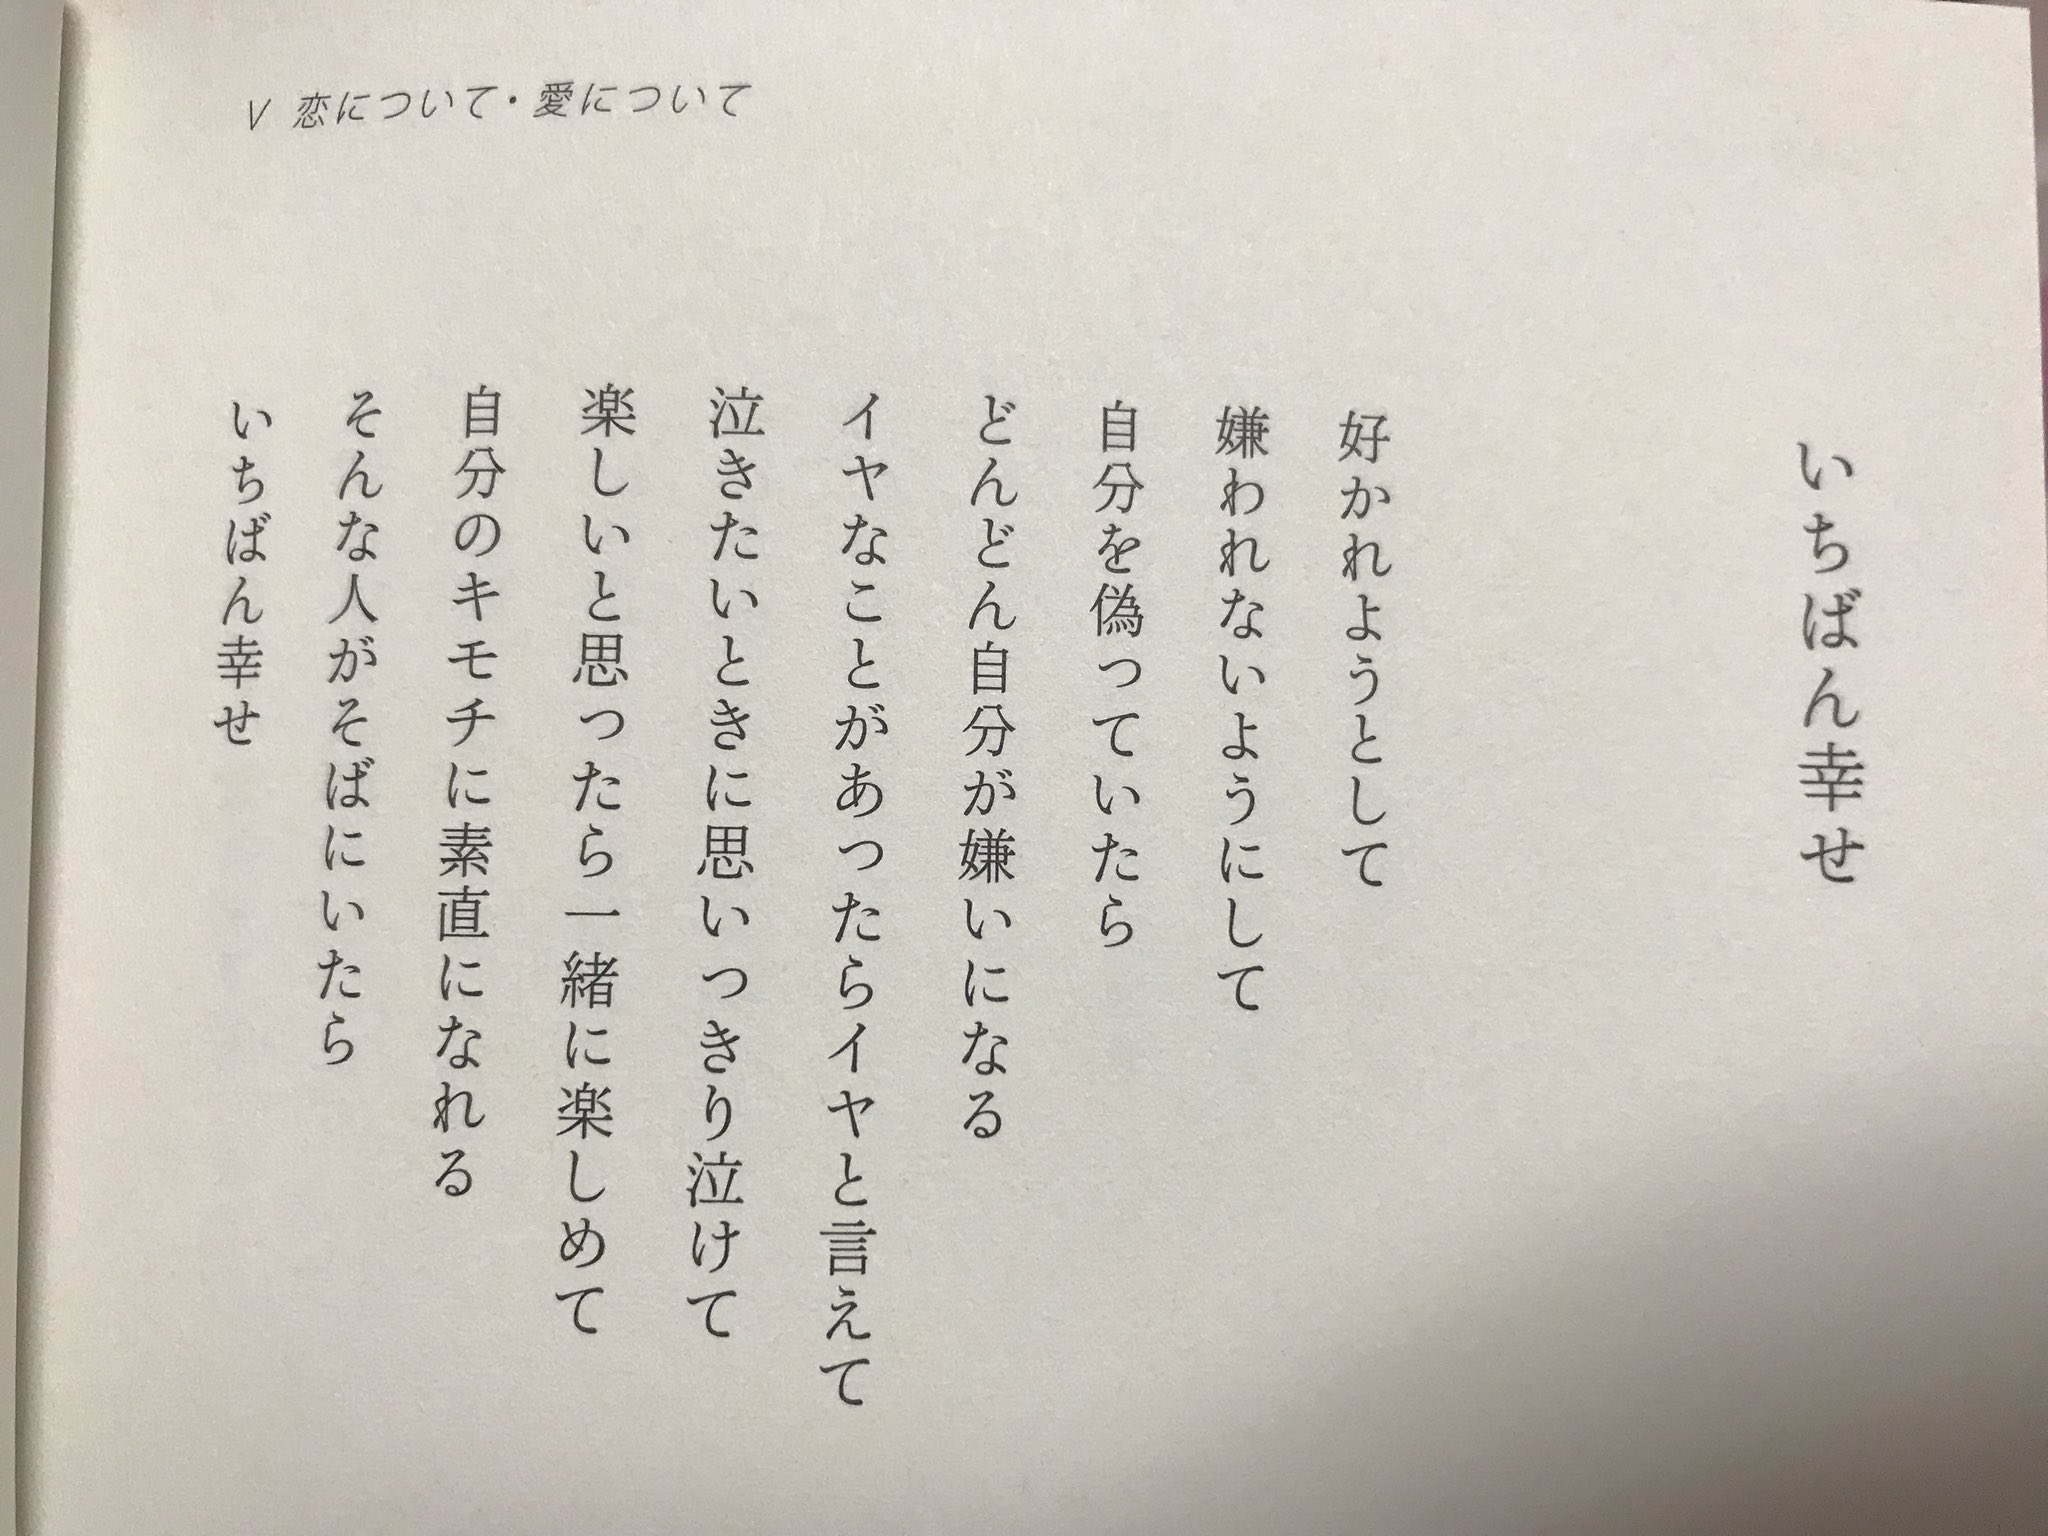 V 恋について・愛について
いちばん幸せ
好かれようとして
嫌われないようにして
自分を偽っていたら
どんどん自分が嫌いになる
イヤなことがあったらイヤと言えて
泣きたいときに思いっきり泣けて
楽しいと思ったら一緒に楽しめて
自分のキモチに素直になれる
そんな人がそばにいたら
いちばん幸せ